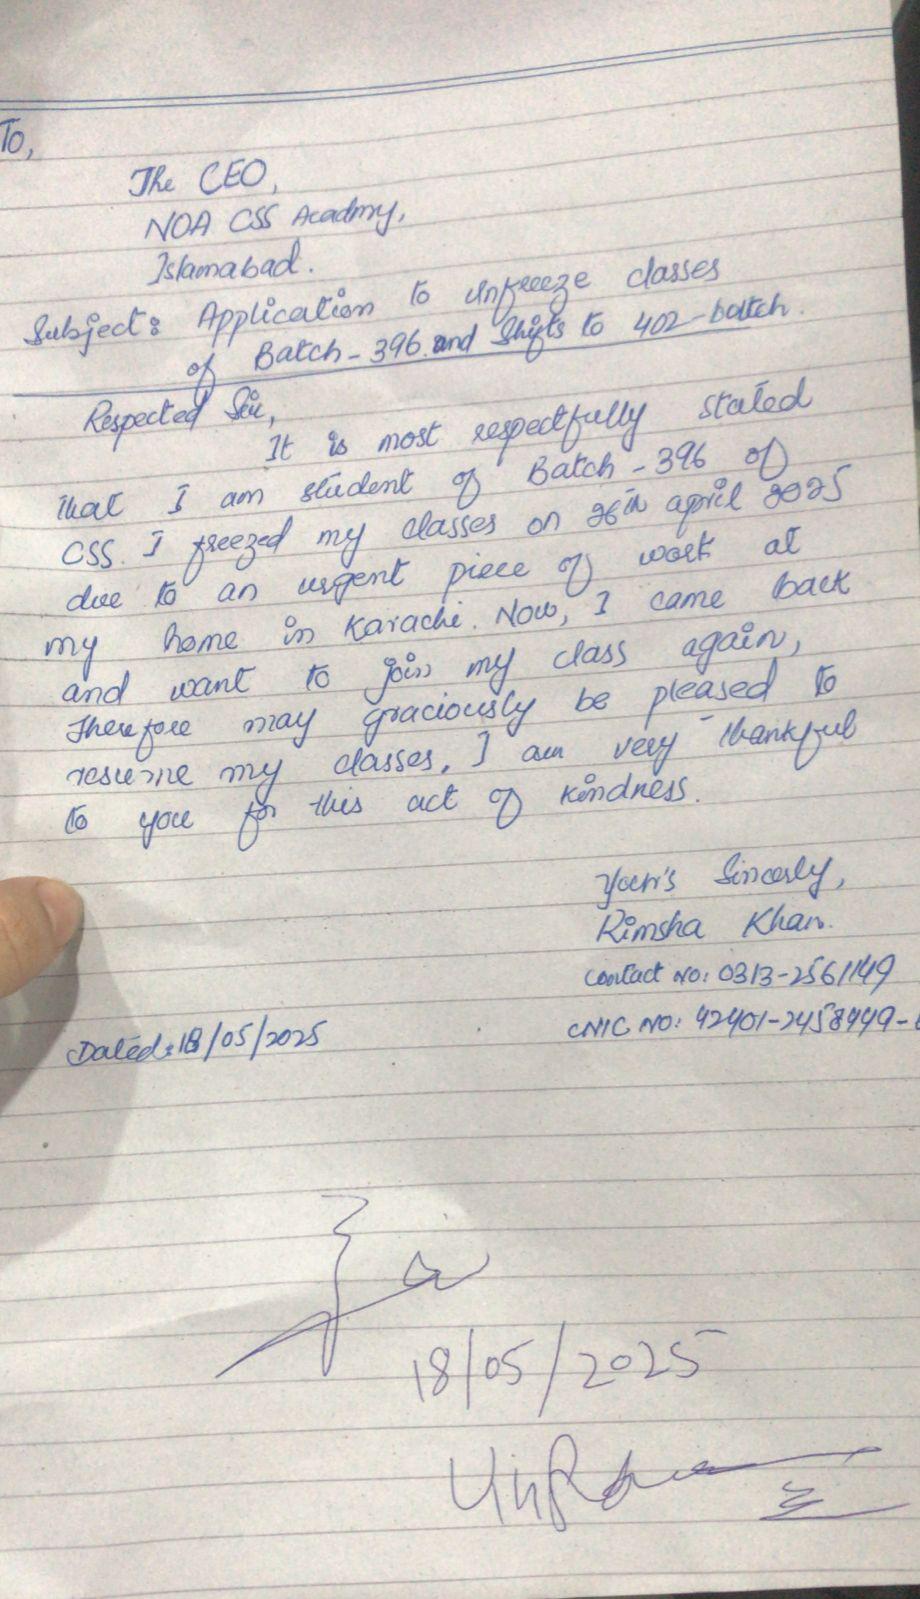 To,
The CEO,
NOA CSS Acadmy,
Islamabad.
Subject: Application to unfreeze classes
of Batch-396 and Shifts to 402-batch.
Respected Sir,
It is most respectfully stated
that I am student of Batch-396 of
CSS. I freezed my classes on 26th april 2025
due to an urgent piece of work at
my home in Karachi. Now, I came back
and want to join my class again,
Therefore may graciously be pleased to
resume my classes. I am very thankful
to you for this act of kindness.
Your's Sincerly,
Rimsha Khan.
Contact no: 0313-2561149
CNIC no: 42401-2458449-
Dated: 18/05/2025
18/05/2025